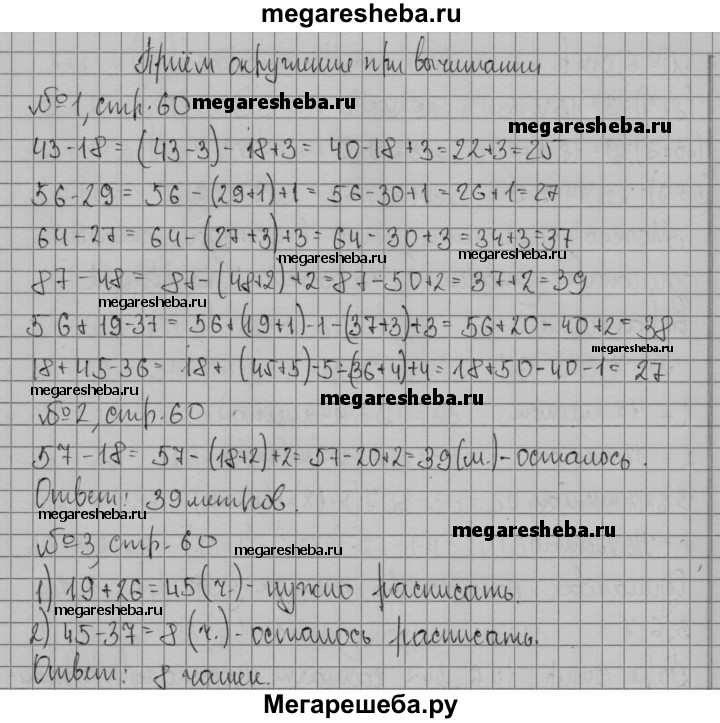 megaresheba.ru
Приём округление при вычитании
№1, стр. 60 megaresheba.ru
megaresheba.ru
43-18 = (43-3) - 18+3 = 40-18+3=22+3=25
56-29 = 56 - (29+1)+1 = 56-30+1=26+1=27
64-27 = 64-(27+3)+3 = 64-30+3=34+3=37
megaresheba.ru megaresheba.ru
87-48 = 87-(48+2)+2=87-50+2=37+2=39
megaresheba.ru
56+19-37 = 56+(19+1)-1-(37+3)+3=56+20-40+2=38
megaresheba.ru
18+45-36 = 18+(45+5)-5-(36+4)+4=18+50-40-1=27
megaresheba.ru megaresheba.ru
№2, стр. 60
57-18 = 57-(18+2)+2=57-20+2=39(м.)-осталось.
Ответ: 39 метров.
megaresheba.ru megaresheba.ru
№3, стр. 60 megaresheba.ru
1) 19+26=45(ч.)-нужно расписать.
megaresheba.ru megaresheba.ru
2) 45-37=8(ч.)-осталось расписать.
Ответ: 8 чашек.
Мегарешеба.ру